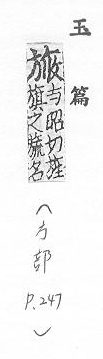 玉篇
与昭切旌
旗之旒名
(方部 P.247)